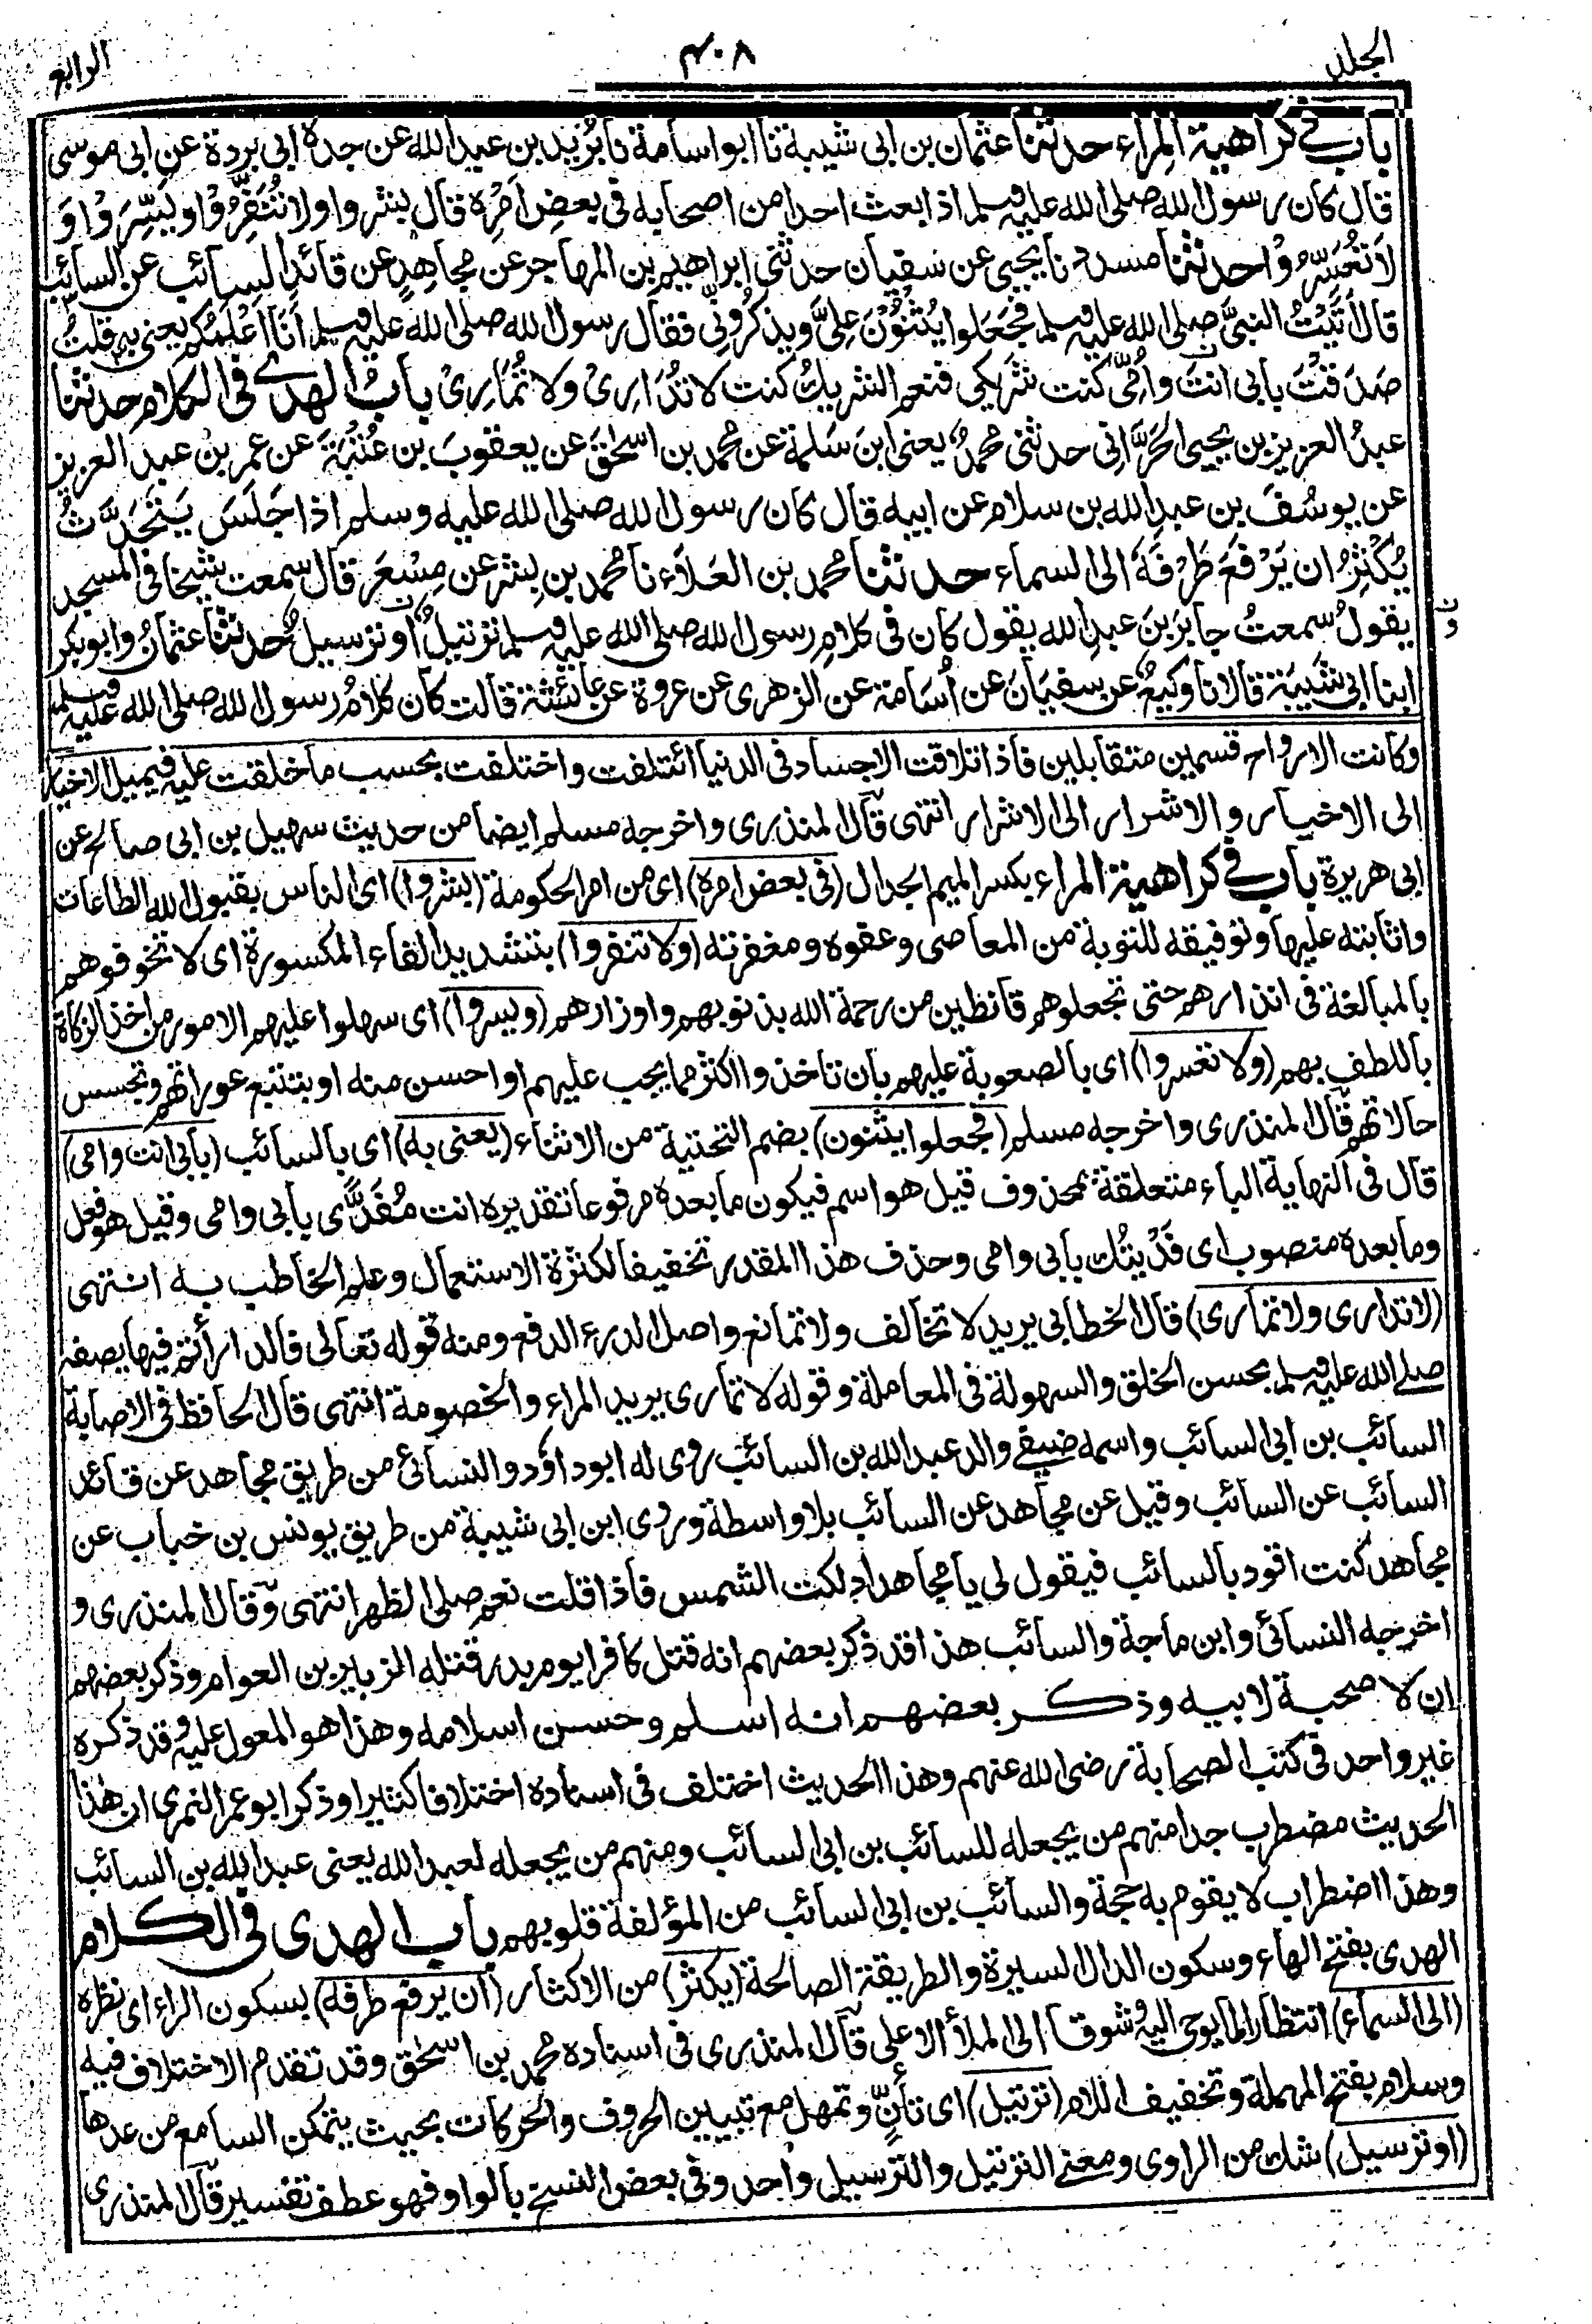 الجلد ٤٠٨ الرابع
باب في كراهية المراء حدثنا عثمان بن ابى شيبة نا ابو اسامة نا بُرَيد بن عبد الله عن جدهٖ ابى بردة عن ابى موسى
قال كان رسول الله صلى الله عليه وسلم اذا بعث احدا من اصحابه فى بعض اَمْرِهٖ قال بشروا ولا تُنَفِّرُوْا ويَسِّرَوْا وَ
لا تُعَسِّرُوْا حدثنا مسدد نا يحيى عن سفيان حدثنى ابراهيم بن المهاجر عن مجاهدٍ عن قائدِ السائب عن السائب
قال اَتَيْتُ النبىَّ صلى الله عليه وسلم فجَعَلوا يُثْنُوْنَ عَلَىَّ ويذكُرُوْنِّى فقال رسول الله صلى الله عليه وسلم اَنَا اَعْلَمُكم يعنى به قلتُ
صَدَقْتَ بابى انتَ واُمّى كنت شَرِيكى فنعم الشريكُ كنت لا تُدَارِىْ ولا تُمَارِىْ بابُ الهدى فى الكلام حدثنا
عبدُ العزيز بن يحيى الحَرَّانِى حدثنى محمدٌ يعنى ابنَ سَلَمة عن محمد بن اسحٰقَ عن يعقوبَ بن عُتْبَةَ عن عمر بن عبد العزيز
عن يوسُفَ بن عبدِ الله بن سلام عن ابيه قال كان رسول الله صلى الله عليه وسلم اذا جَلَسَ يَتَحَدَّثُ
يُكْثِرُ ان يَرْفَعَ طَرْفَهٗ الى السماء حدثنا محمد بن العَلَاءِ نا محمد بن بِشْر عن مِسْعَرٍ قال سمعت شيخا فى المسجد
يقولُ سمعتُ جابرَ بنَ عبدِ الله يقول كان فى كلامِ رسول الله صلى الله عليه وسلم ترتيلٌ او ترسيلٌ حدثنا عثمانُ وابوبكر
ابنا ابى شَيْبَةَ قالا نا وكيعٌ عن سفيانَ عن اُسَامة عن الزهرى عن عروة عن عائشة قالت كان كلامُ رسول الله صلى الله عليه وسلم
وكانت الارواح قسمين متقابلين فاذا تلاقت الاجساد فى الدنيا ائتلفت واختلفت بحسب ما خلقت عليه فيميل الاخيار
الى الاخيار والاشرار الى الاشرار انتهى قال المنذرى واخرجه مسلم ايضا من حديث سهيل بن ابى صالح عن
ابى هريرة باب في كراهية المراء بكسر الميم الجدال (فى بعض امره) اى من امر الحكومة (بشروا) اى الناس بقبول الله الطاعات
واثابته عليها وتوفيقه للتوبة من المعاصى وعفوه ومغفرته (ولا تنفروا) بتشديد الفاء المكسورة اى لا تخوفوهم
بالمبالغة فى انذارهم حتى تجعلوهم قانطين من رحمة الله بذنوبهم واوزارهم (ويسروا) اى سهلوا عليهم الامور من اخذ الزكاة
باللطف بهم (ولا تعسروا) اى بالصعوبة عليهم بان تاخذوا اكثر مما يجب عليهم او احسن منه او بتتبع عوراتهم وتجسس
حالاتهم قال المنذرى واخرجه مسلم (فجعلوا يثنون) بضم التحتية من الاثناء (يعنى به) اى بالسائب (بابى انت وامى)
قال فى النهاية الباء متعلقة بمحذوف قيل هو اسم فيكون ما بعده مرفوعا تقديره انت مُفَدًّى بابى وامى وقيل هو فعل
وما بعده منصوب اى فَدَيْتُك بابى وامى وحذف هذا المقدر تخفيفا لكثرة الاستعمال وعلم المخاطب به انتهى
(لا تدارى ولا تمارى) قال الخطابى يريد لا تخالف ولا تمانع واصل الدرء الدفع ومنه قوله تعالى فادارأتم فيها يصفه
صلى الله عليه وسلم بحسن الخلق والسهولة فى المعاملة وقوله لا تمارى يريد المراء والخصومة انتهى قال الحافظ فى الاصابة
السائب بن ابى السائب واسمه صيفى والد عبد الله بن السائب روى له ابو داؤد والنسائى من طريق مجاهد عن قائد
السائب عن السائب وقيل عن مجاهد عن السائب بلا واسطة وروى ابن ابى شيبة من طريق يونس بن خباب عن
مجاهد كنت اقود بالسائب فيقول لى يا مجاهد ادلكت الشمس فاذا قلت نعم صلى الظهر انتهى وقال المنذرى و
اخرجه النسائى وابن ماجة والسائب هذا قد ذكر بعضهم انه قتل كافرا يوم بدر قتله الزبير بن العوام وذكر بعضهم
ان لا صحبة لابيه وذكر بعضهم انه اسلم وحسن اسلامه وهذا هو المعول عليه وقد ذكره
غير واحد فى كتب الصحابة رضى الله عنهم وهذا الحديث اختلف فى اسناده اختلافا كثيرا وذكر ابو عمر النمرى ان هذا
الحديث مضطرب جدا منهم من يجعله للسائب بن ابى السائب ومنهم من يجعله لعبد الله يعنى عبد الله بن السائب
وهذا اضطراب لا يقوم به حجة والسائب بن ابى السائب من المؤلفة قلوبهم باب الهدى فى الكلام
الهدى بفتح الهاء وسكون الدال السيرة والطريقة الصالحة (يكثر) من الاكثار (ان يرفع طرفه) بسكون الراء اى نظره
(الى السماء) انتظارا لما يوحى اليه وشوقا الى الملأ الاعلى قال المنذرى فى اسناده محمد بن اسحٰق وقد تقدم الاختلاف فيه
وسلام بفتح المهملة وتخفيف اللام (ترتيل) اى تأنٍّ وتمهل مع تبيين الحروف والحركات بحيث يتمكن السامع من عدها
(او ترسيل) شك من الراوى ومعنى الترتيل والترسيل واحد وفى بعض النسخ بالواو فهو عطف تفسير قال المنذرى